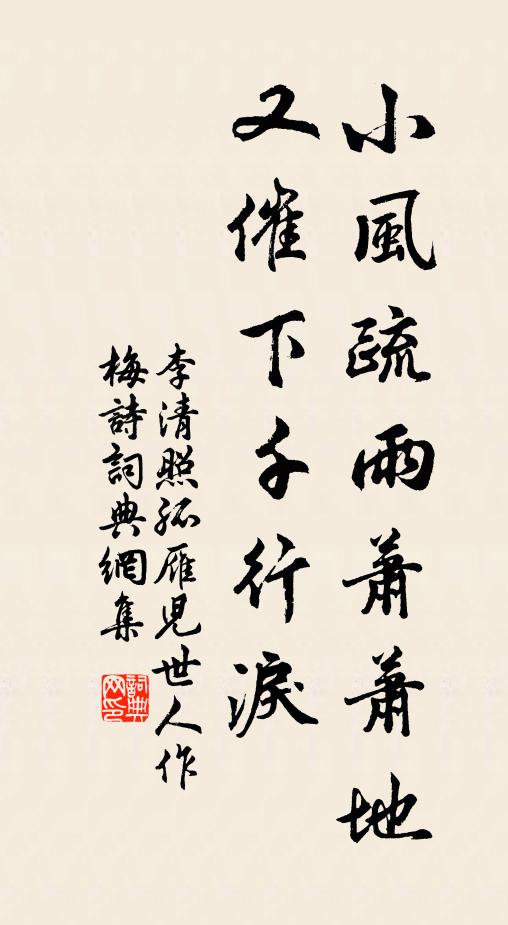 小風疏雨蕭蕭地
又催下千行淚
李清照孤雁兒世人作
梅詩詞典網集
詞典
网印